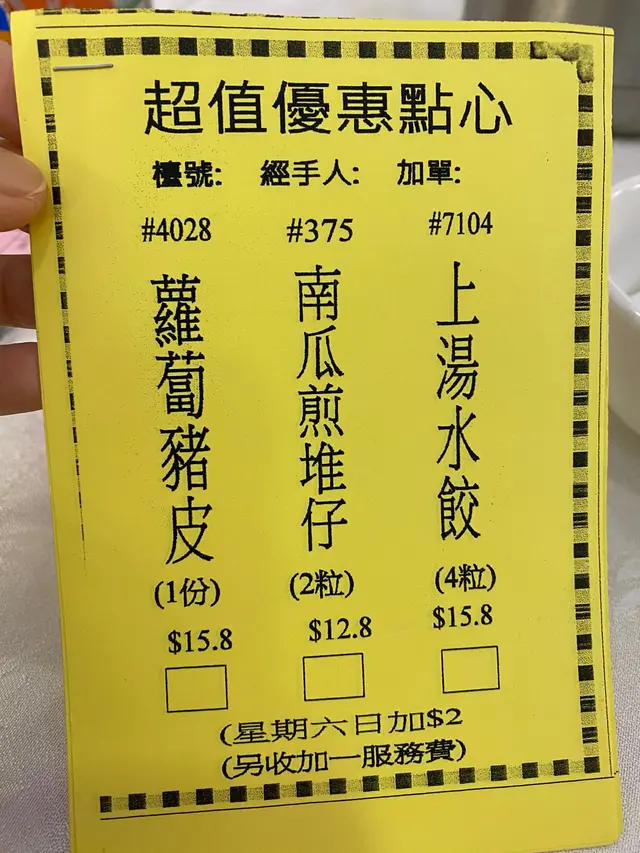 超值優惠點心
檯號: 經手人: 加單:
#4028 #375 #7104
上湯水餃
(4粒)
$15.8
南瓜煎堆仔
(2粒)
$12.8
蘿蔔豬皮
(1份)
$15.8
(星期六日加$2
(另收加一服務費)